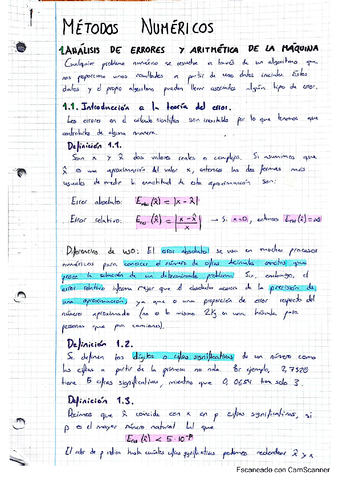 MÉTODOS NUMÉRICOS
1. ANÁLISIS DE ERRORES Y ARITMÉTICA DE LA MÁQUINA
Cualquier problema numérico se resuelve a través de un algoritmo que
nos proporciona unos resultados a partir de unos datos iniciales. Estos
datos y el propio algoritmo pueden llevar asociados algún tipo de error.
1.1. Introducción a la teoría del error.
Los errores en el cálculo científico son inevitables por lo que tenemos que
controlarlos de alguna manera.
Definición 1.1.
Sean x y x̂ dos valores reales o complejos. Si asumimos que
x̂ es una aproximación del valor x, entonces las dos formas más
usuales de medir la exactitud de esta aproximación son:
Error absoluto: E_abs(x̂) = |x - x̂|
Error relativo: E_rel(x̂) = |x - x̂ / x| → Si x=0, entonces E_rel(x̂) = ∞
Diferencias de uso: El error absoluto se usa en muchos procesos
numéricos para conocer el número de cifras decimales exactas que
posee la solución de un determinado problema. Sin embargo, el
error relativo informa mejor que el absoluto acerca de la precisión de
una aproximación ya que da una proporción de error respecto del
número aproximado (no es lo mismo 2Kg en una báscula para
personas que para camiones).
Definición 1.2.
Se definen los dígitos o cifras significativas de un número como
las cifras a partir de la primera no nula. Por ejemplo, 2,7320
tiene 5 cifras significativas, mientras que 0,0684 tan solo 3.
Definición 1.3.
Decimos que x̂ coincide con x en p cifras significativas, si
p es el mayor número natural tal que
E_rel(x̂) < 5·10^-p
El valor de p indica hasta cuántas cifras significativas podemos redondear x̂ y x
Escaneado con CamScanner